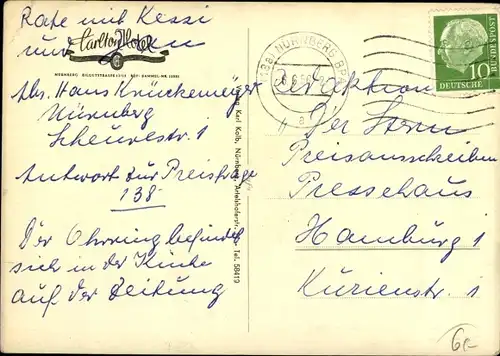 Rate mit Kessi
und Jan
Carlton Hotel
NÜRNBERG
Abs. Hans Knickemeyer
Nürnberg
Scheurlstr. 1
Antwort zur Preisfrage
138
Der Ohrring befindet
sich in der Küche
auf der Zeitung
Karl Kolb, Nürnberg, Tel. 58419
NÜRNBERG BPA
a
DEUTSCHE BUNDESPOST
10
Redaktion
Der Stern
Preisausschreiben
Pressehaus
Hamburg 1
Kurienstr. 1
6.-